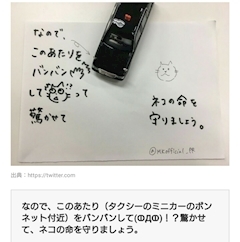 なので、
このあたりを、
バンバン
してって
驚かせて
ネコの命を
守りましょう。
出典：https://twitter.com
なので、このあたり（タクシーのミニカーのボン
ネット付近）をバンバンして(ΦДΦ)！？驚かせ
て、ネコの命を守りましょう。